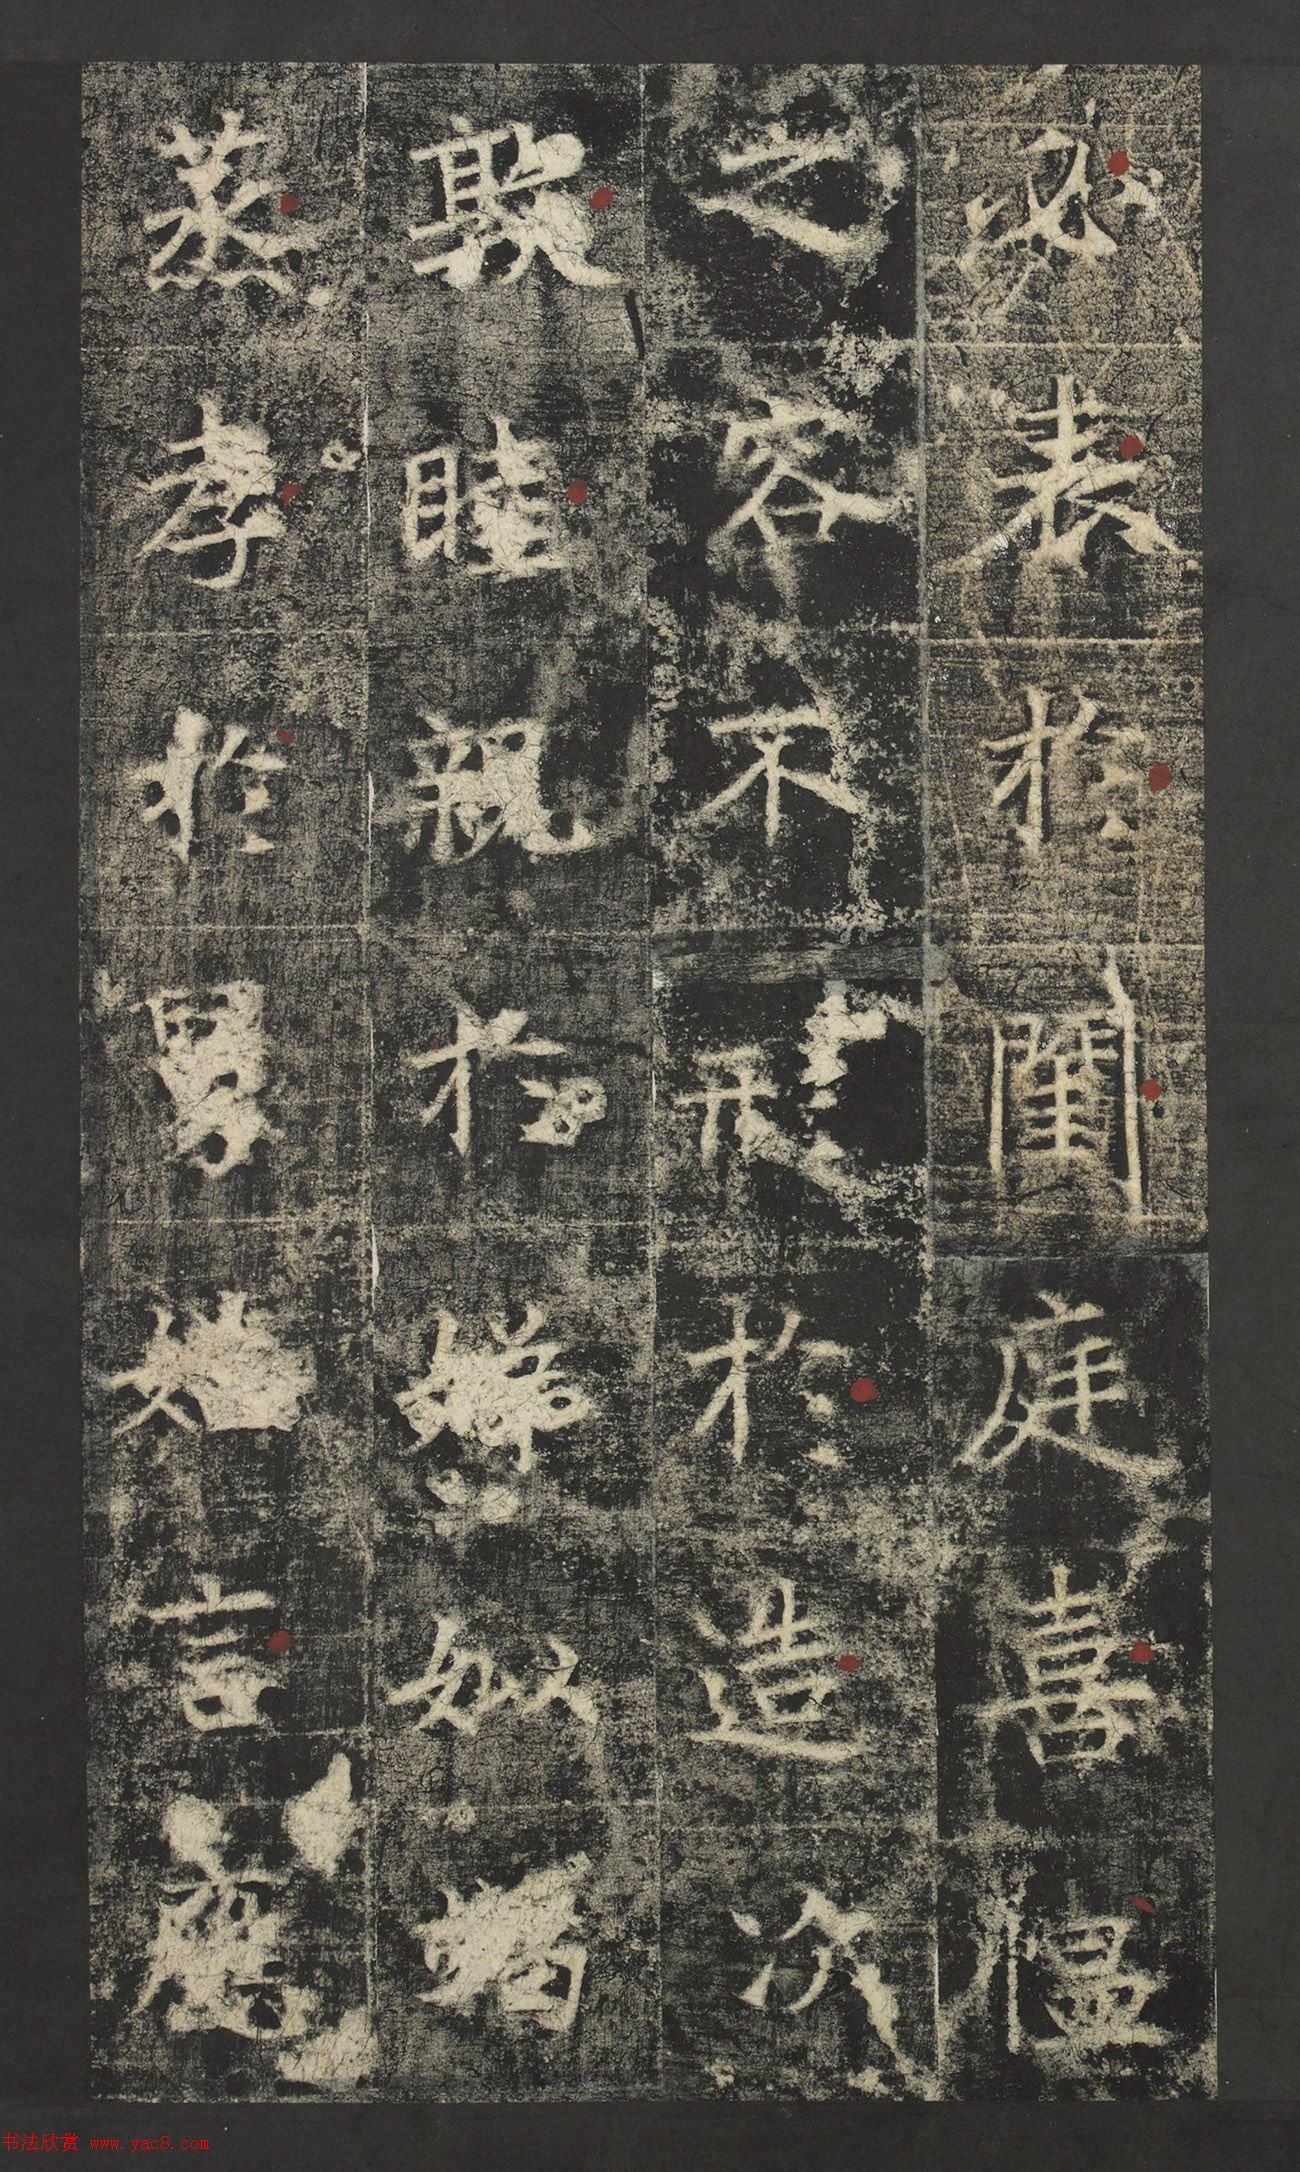 必表於閨庭喜慍
之容不形於造次
敦睦親於娣姒
蒸孝於舅姑言
书法欣赏 www.yac8.com